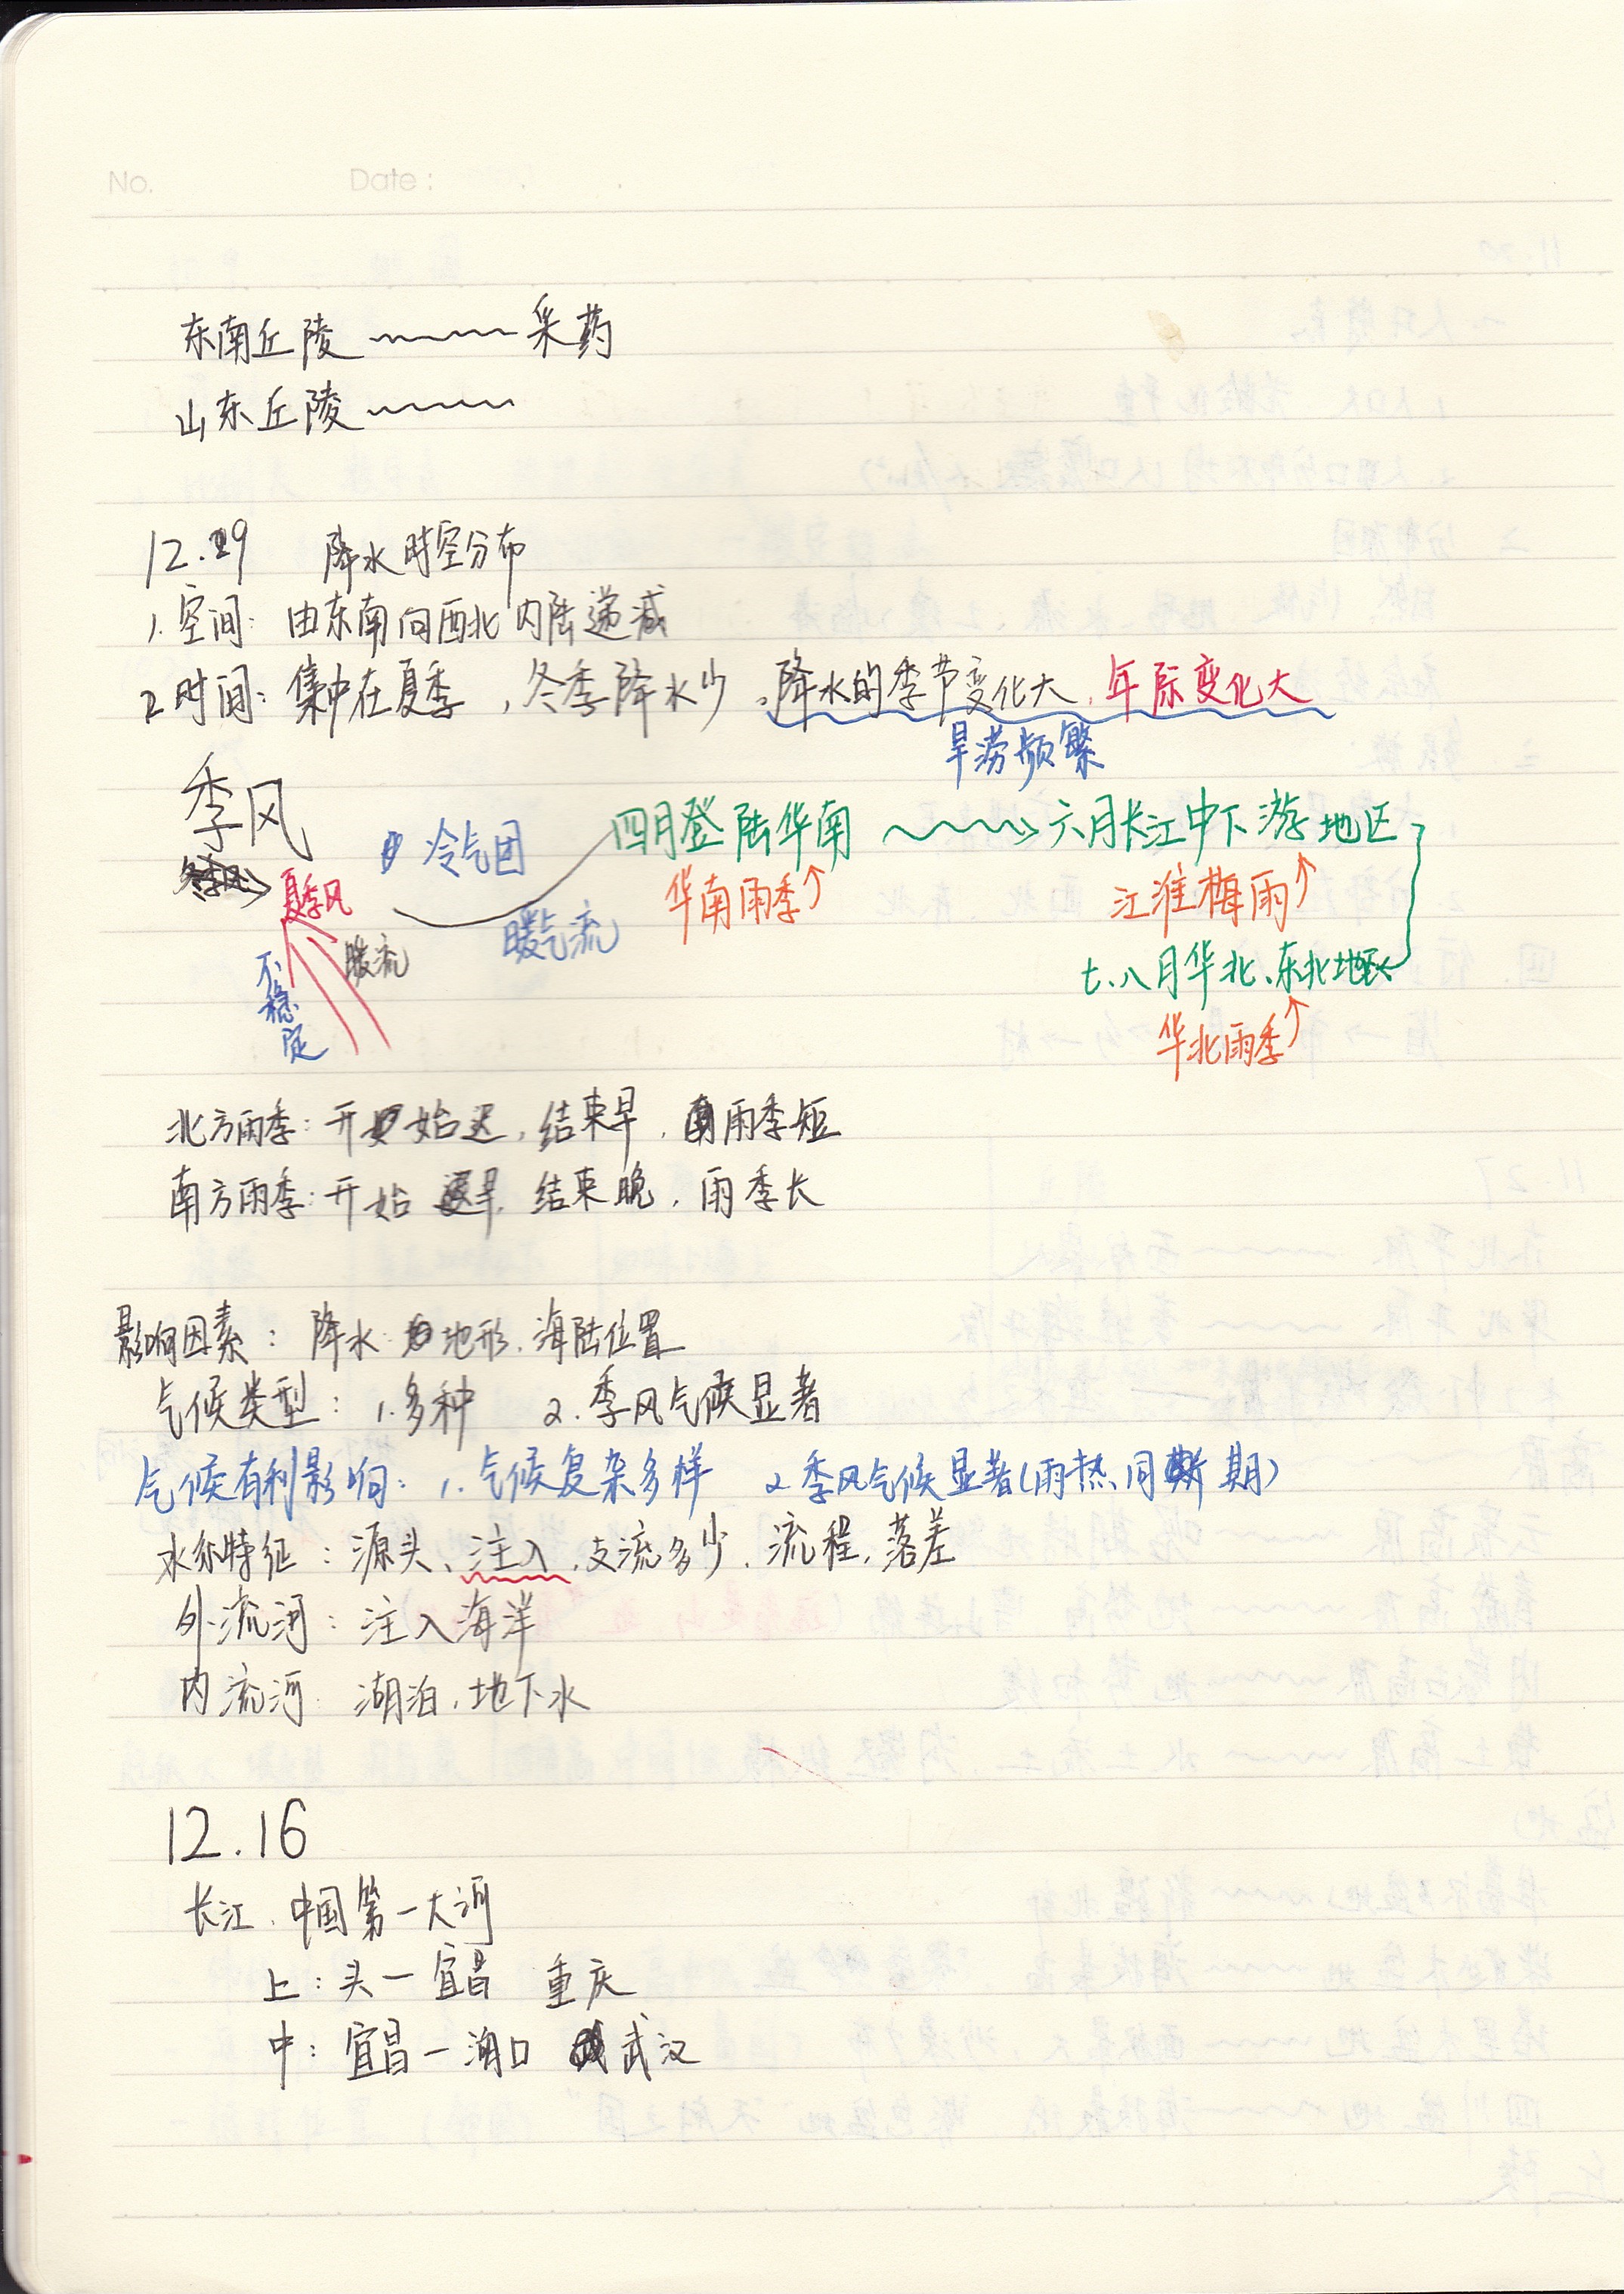 No. Date:
东南丘陵 采药
山东丘陵
12.29 降水时空分布
1.空间: 由东南向西北内陆递减
2.时间: 集中在夏季,冬季降水少.降水的季节变化大.年际变化大
旱涝频繁
季风
冷气团 四月登陆华南 六月长江中下游地区
夏季风 华南雨季↑ 江淮梅雨↑
暖流 暖气流
不稳定 七、八月华北、东北地区
华北雨季↑
北方雨季:开始迟,结束早,雨季短
南方雨季:开始早,结束晚,雨季长
影响因素:降水:地形.海陆位置
气候类型: 1.多种 2.季风气候显著
气候有利影响: 1.气候复杂多样 2.季风气候显著(雨热同期)
水系特征:源头、注入、支流多少、流程、落差
外流河:注入海洋
内流河:湖泊、地下水
12.16
长江.中国第一大河
上:头一宜昌 重庆
中:宜昌一湖口 武汉